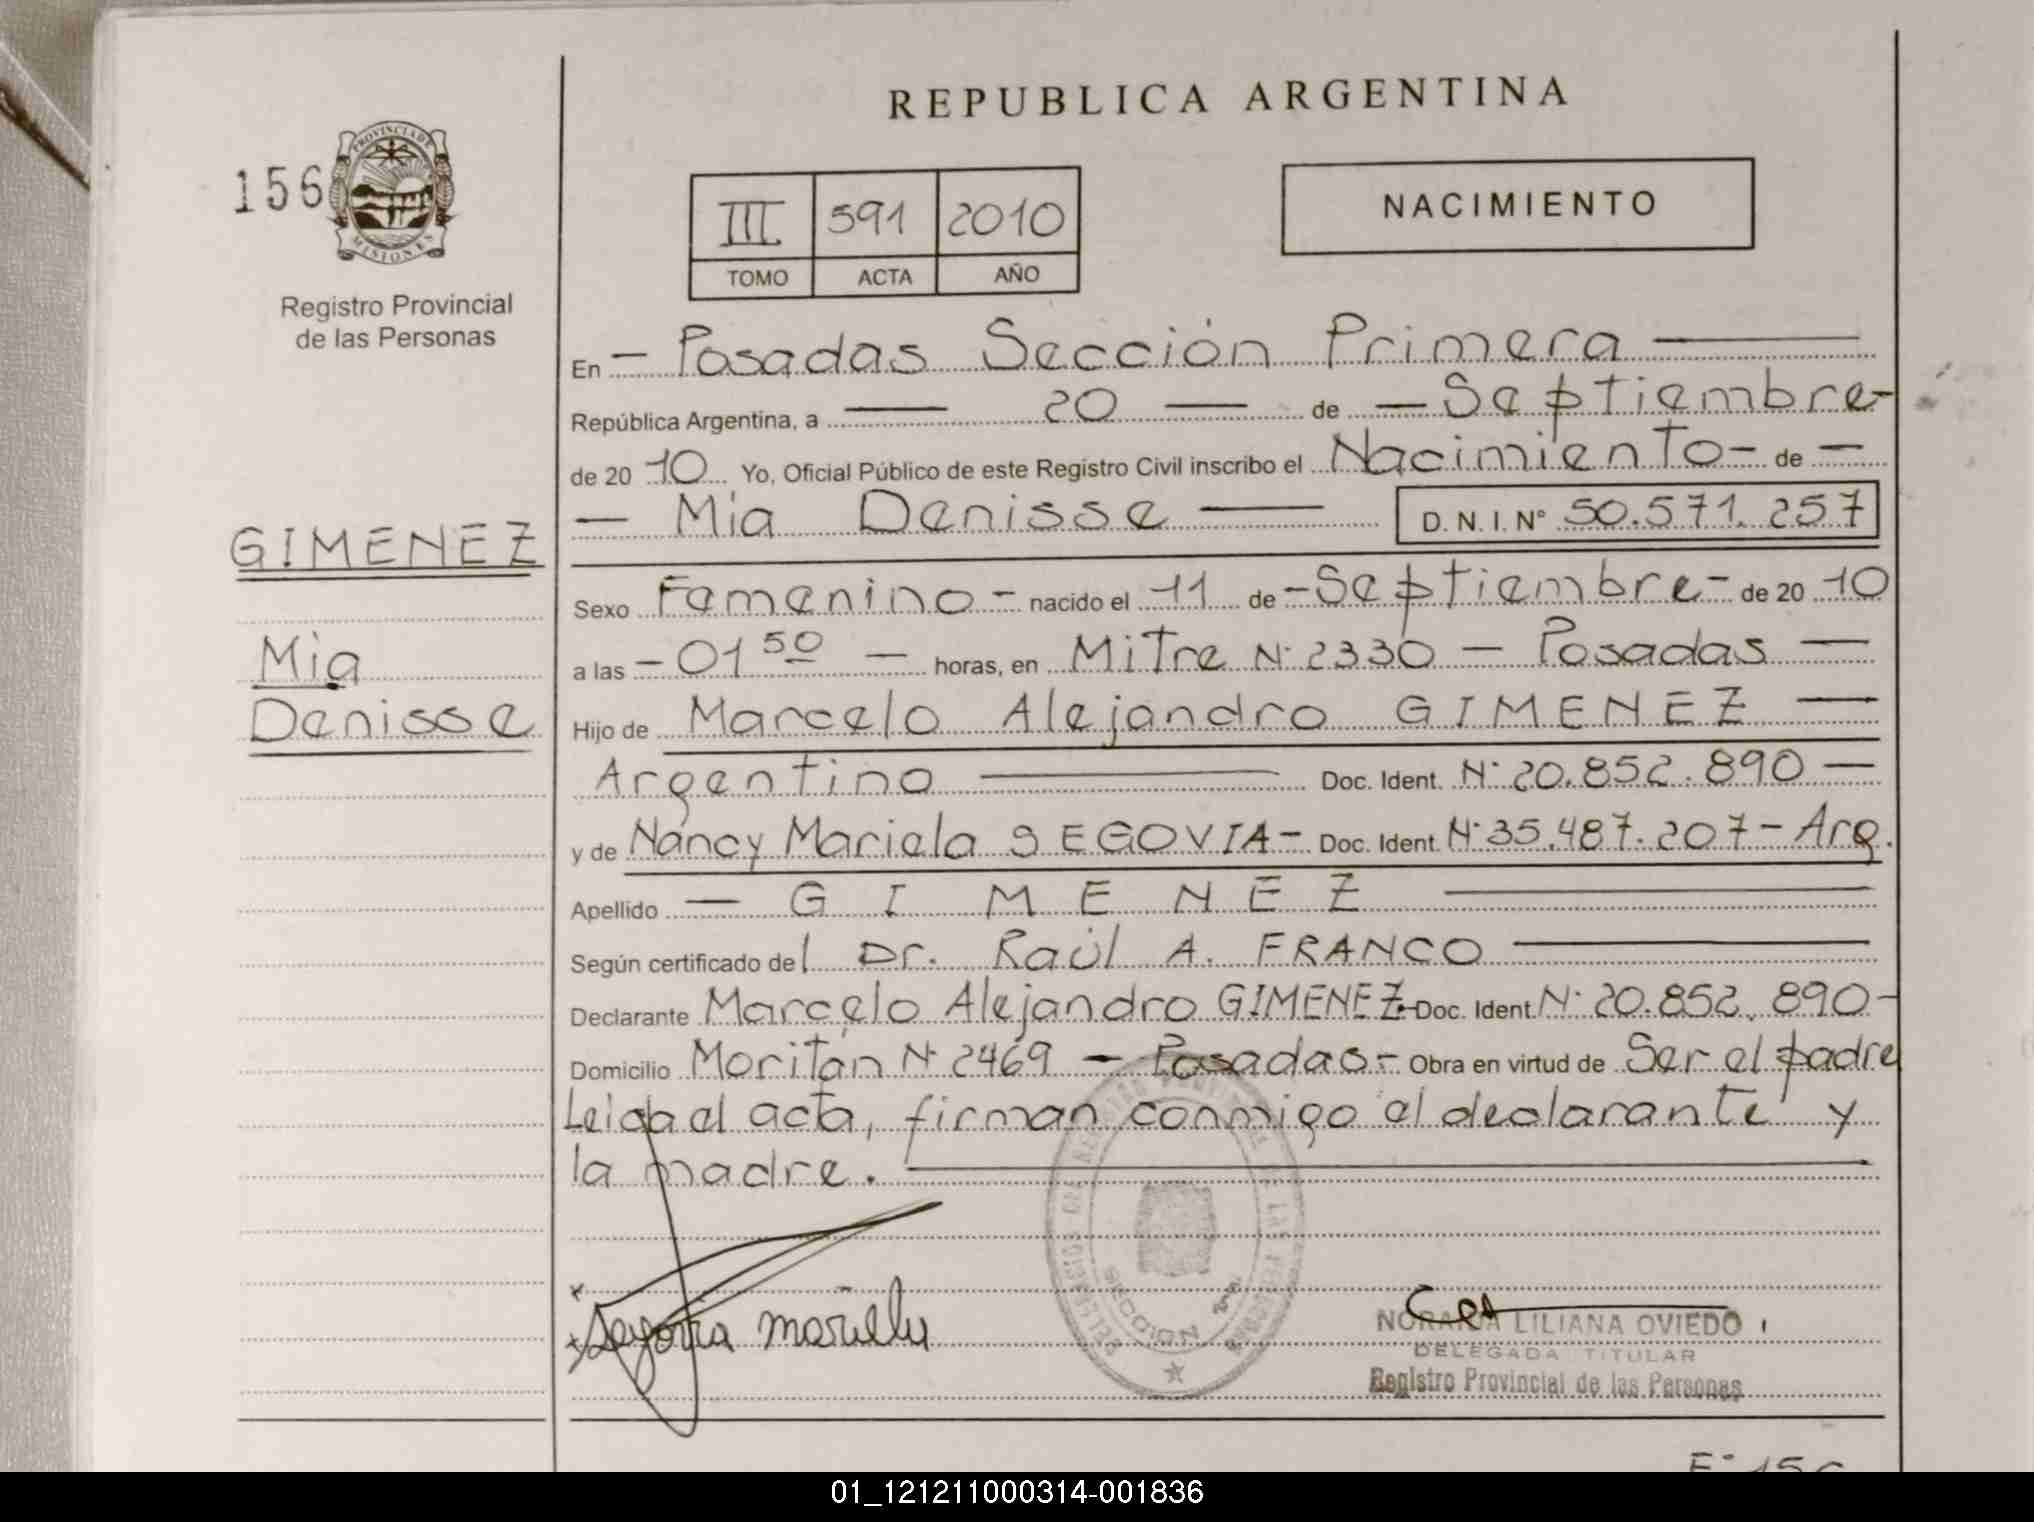 REPUBLICA ARGENTINA
156
PROVINCIA DE
MISIONES
Registro Provincial
de las Personas
III 591 2010
TOMO ACTA AÑO
NACIMIENTO
En - Posadas Sección Primera
República Argentina, a 20 de - Septiembre -
de 20 10 Yo, Oficial Público de este Registro Civil inscribo el Nacimiento - de -
- Mía Denisse - D.N.I. Nº 50.571.257
GIMENEZ
Mía
Denisse
Sexo Femenino - nacido el 11 de - Septiembre - de 20 10
a las - 01 50 - horas, en Mitre Nº 2330 - Posadas -
Hijo de Marcelo Alejandro GIMENEZ -
Argentino Doc. Ident. Nº 20.852.890 -
y de Nancy Mariela SEGOVIA - Doc. Ident. Nº 35.487.207 - Arg.
Apellido - GIMENEZ
Según certificado del Dr. Raúl A. FRANCO
Declarante Marcelo Alejandro GIMENEZ.- Doc. Ident. Nº 20.852.890 -
Domicilio Moritán Nº 2469 - Posadas.- Obra en virtud de Ser el padre
Leida el acta, firman conmigo el declarante y
la madre.
x
x Segovia mariela
SECCION
NORMA LILIANA OVIEDO
DELEGADA TITULAR
Registro Provincial de las Personas
01_121211000314-001836